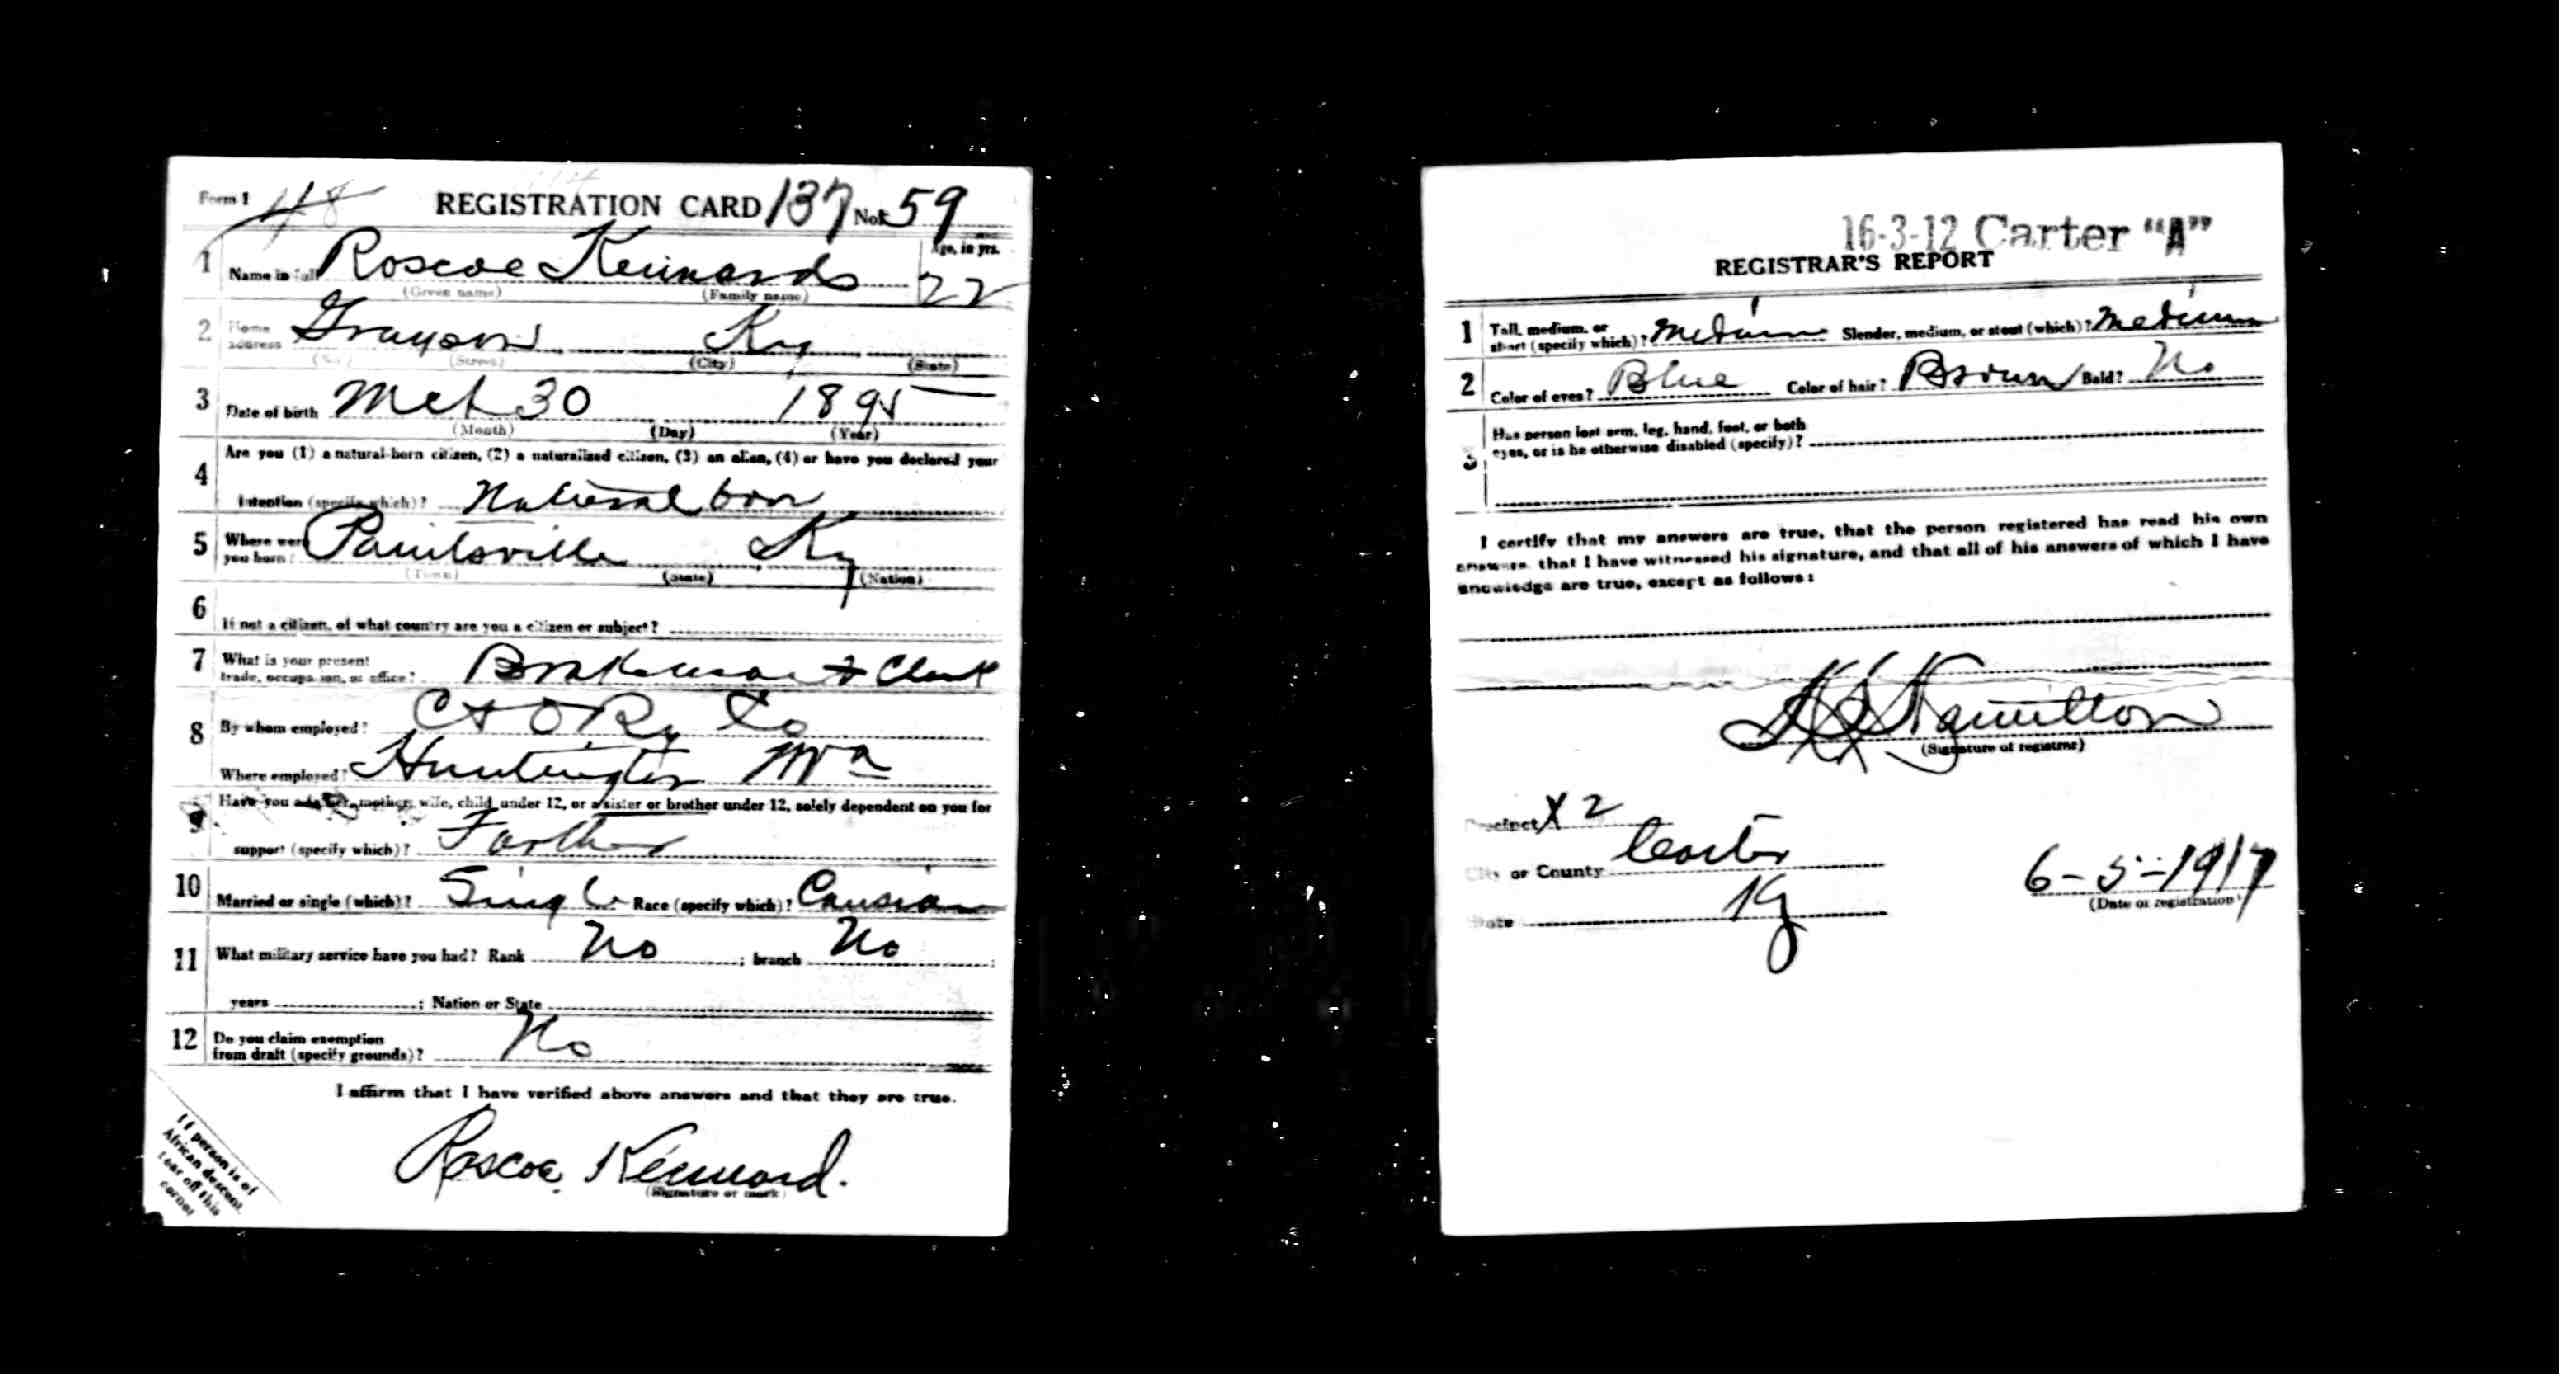 Form 1 48 REGISTRATION CARD 137 No. 59
1 Name in full Roscoe Kennard Age, in yrs. 22
(Given name) (Family name)
2 Home address Grayson Ky
(No.) (Street) (City) (State)
3 Date of birth Mch 30 1895
(Month) (Day) (Year)
4 Are you (1) a natural-born citizen, (2) a naturalized citizen, (3) an alien, (4) or have you declared your
intention (specify which)? National born
5 Where were you born? Paintsville Ky
(Town) (State) (Nation)
6 If not a citizen, of what country are you a citizen or subject?
7 What is your present trade, occupation, or office? Brakeman & Clerk
8 By whom employed? C & O Ry Co
Where employed? Huntington
9 Have you a father, mother, wife, child under 12, or a sister or brother under 12, solely dependent on you for
support (specify which)? Farther
10 Married or single (which)? Single Race (specify which)? Causian
11 What military service have you had? Rank No ; branch No ;
years ; Nation or State
12 Do you claim exemption from draft (specify grounds)? No
I affirm that I have verified above answers and that they are true.
Roscoe Kennard.
(Signature or mark)
If person is of
African descent,
tear off this
corner
16-3-12 Carter "A"
REGISTRAR'S REPORT
1 Tall, medium, or short (specify which)? Medium Slender, medium, or stout (which)? Medium
2 Color of eyes? Blue Color of hair? Brown Bald? No
3 Has person lost arm, leg, hand, foot, or both
eyes, or is he otherwise disabled (specify)?
I certify that my answers are true, that the person registered has read his own
answers, that I have witnessed his signature, and that all of his answers of which I have
knowledge are true, except as follows:
Hamilton
(Signature of registrar)
Precinct X 2
City or County Carter
State Ky
6-5-1917
(Date of registration)